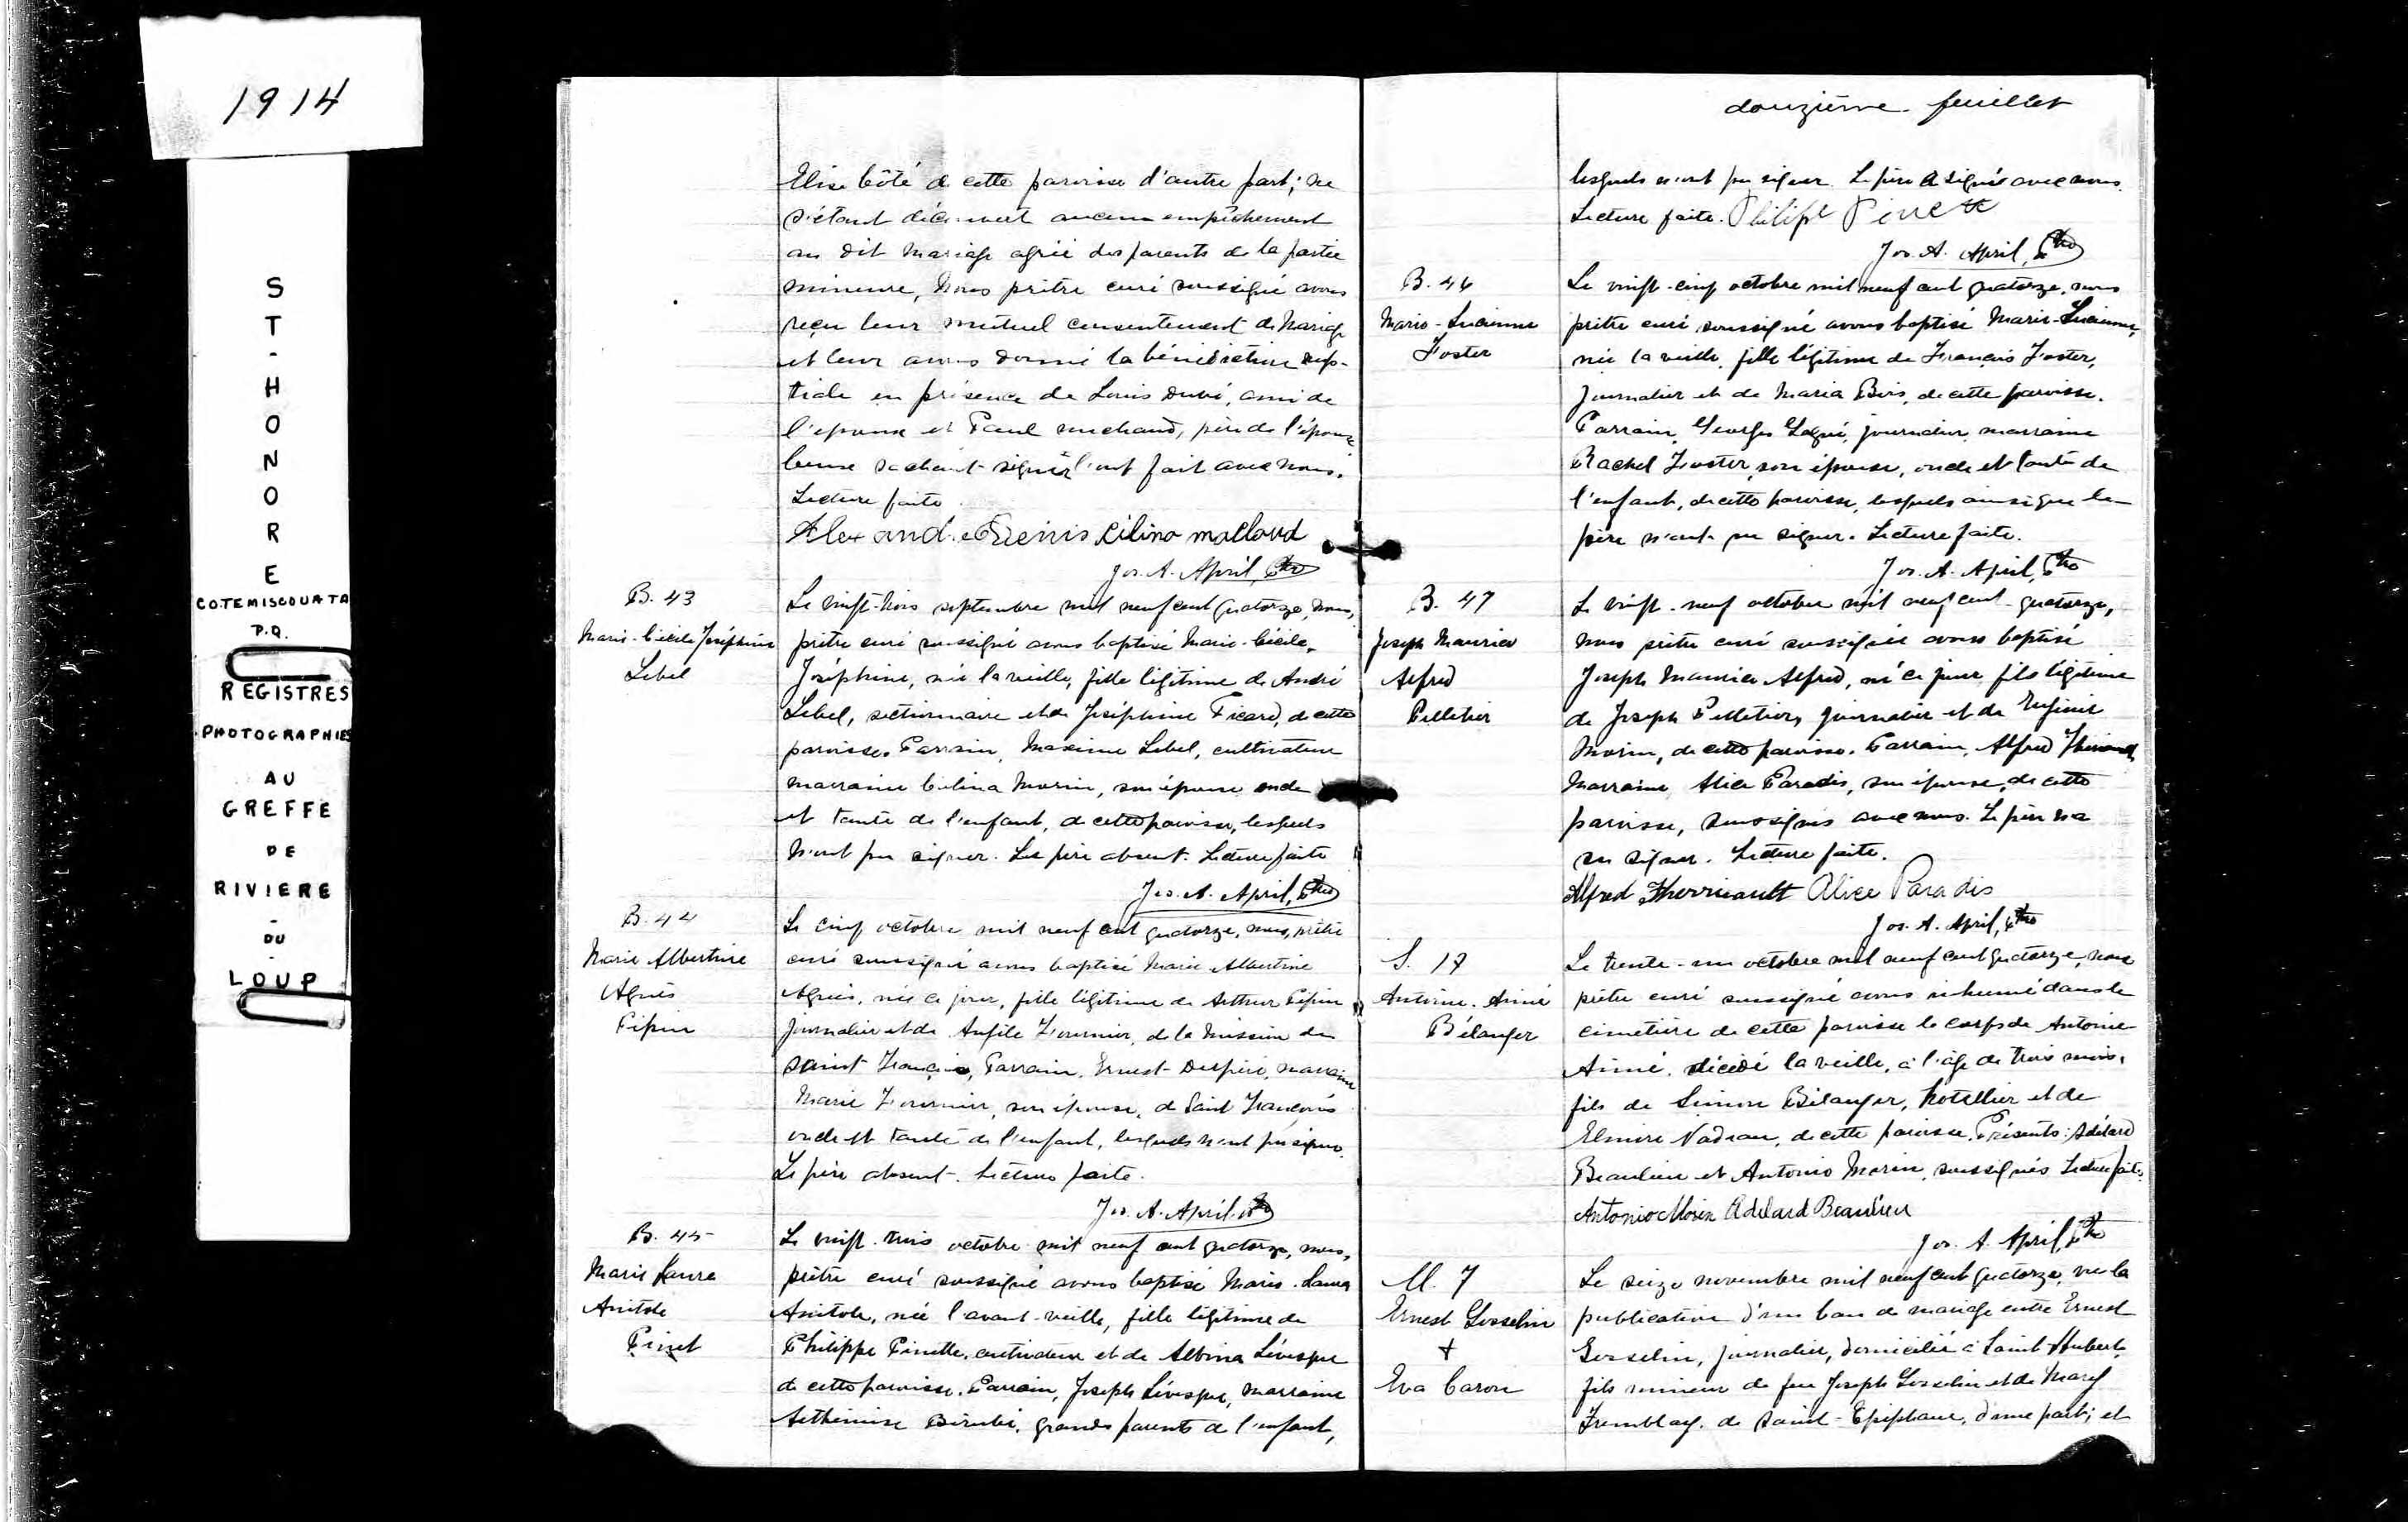 1914
S
T
-
H
O
N
O
R
E
CO.TEMISCOUATA
P.Q.
REGISTRES
PHOTOGRAPHIES
AU
GREFFE
DE
RIVIERE
-
DU
-
LOUP
Elise Côté de cette paroisse d'autre part; ne
s'étant découvert aucun empêchement
au dit mariage agréé des parents de la partie
mineure, Nous prêtre curé soussigné avons
reçu leur mutuel consentement de Mariage
et leur avons donné la bénédiction nup-
tiale en présence de Louis Dubé, ami de
l'époux et Paul michaud, père de l'épouse
sachant signer l'ont fait avec nous.
Lecture faite
Jos. A. April, Ptre
B. 43
Marie-Cécile Joséphine
Lebel
Le vingt-trois septembre mil neuf cent quatorze, nous,
prêtre curé soussigné avons baptisé Marie-Cécile-
Joséphine, née la veille, fille légitime de André
Lebel, sectionnaire et de Joséphine Picard, de cette
paroisse. Parrain, Maxime Lebel, cultivateur
marraine Celina Morin, son épouse oncle
et tante de l'enfant, de cette paroisse, lesquels
n'ont pu signer. Le père absent. Lecture faite
Jos. A. April, Ptre
B. 44
Marie Albertine
Agnès
Pépin
Le cinq octobre mil neuf cent quatorze, nous, prêtre
curé soussigné avons baptisé Marie Albertine
Agnès, née ce jour, fille légitime de Arthur Pépin
journalier et de Angèle Fournier, de la mission de
Saint François, Parrain, Ernest Després, marraine
Marie Fournier, son épouse, de Saint François
oncle et tante de l'enfant, lesquels n'ont pu signer.
Le père absent. Lecture faite.
Jos. A. April, Ptre
B. 45
Marie Laura
Anitole
Pinet
Le vingt-trois octobre mil neuf cent quatorze, nous,
prêtre curé soussigné avons baptisé Marie-Laura
Anitole, née l'avant-veille, fille légitime de
Philippe Pinette, cultivateur et de Albina Lévesque
de cette paroisse. Parrain, Joseph Lévesque, marraine
Arthémise Bérubé, grands parents de l'enfant,
douzième feuillet
lesquels n'ont pu signer. Le père a signé avec nous.
Lecture faite. Philipe
Jos. A. April, Ptre
B. 46
Marie-Lucienne
Foster
Le vingt-cinq octobre mil neuf cent quatorze, nous
prêtre curé soussigné avons baptisé Marie-Lucienne,
née la veille, fille légitime de François Foster,
journalier et de Maria Bois, de cette paroisse.
Parrain, Georges Gagné, journalier, marraine
Rachel Foster, son épouse, oncle et tante de
l'enfant, de cette paroisse, lesquels ainsi que le
père n'ont pu signer. Lecture faite.
Jos. A. April, Ptre
B. 47
Joseph Maurice
Alfred
Pelletier
Le vingt-neuf octobre mil neuf cent quatorze,
nous prêtre curé soussigné avons baptisé
Joseph Maurice Alfred, né ce jour fils légitime
de Joseph Pelletier, journalier et de
Morin, de cette paroisse. Parrain, Alfred
Marraine Alice Paradis, son épouse, de cette
paroisse, soussignés avec nous. Le père n'a
su signer. Lecture faite.
Alfred Therrieault Alice Paradis
Jos. A. April, Ptre
S. 17
Antoine-Aimé
Bélanger
Le trente-un octobre mil neuf cent quatorze, nous
prêtre curé soussigné avons inhumé dans le
cimetière de cette paroisse le corps de Antoine
Aimé, décédé la veille, à l'âge de trois mois,
fils de Simon Bélanger, hotellier et de
Elmire Nadeau, de cette paroisse. Présents: Adélard
Beaulieu et Antonio Morin, soussignés Lecture faite.
Antonio Morin Adelard Beaulieu
Jos. A. April, Ptre
M. 7
Ernest Gosselin
+
Eva Caron
Le seize novembre mil neuf cent quatorze, vu la
publication d'un ban de mariage entre Ernest
Gosselin, journalier, domicilié à Saint-Hubert,
fils mineur de feu Joseph Gosselin et de Mary
Tremblay, de Saint-Epiphane, d'une part; et